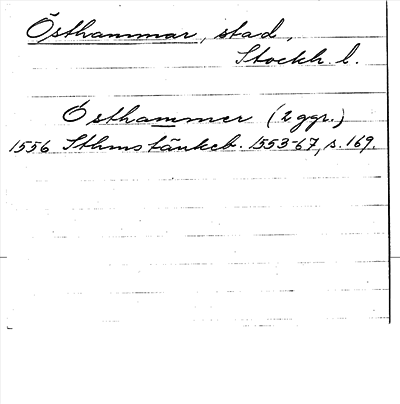 Östhammar, stad,
Stockh. l.
Östhammer (2 ggr.)
1556 Sthms tänkeb. 1553-67, s. 169.